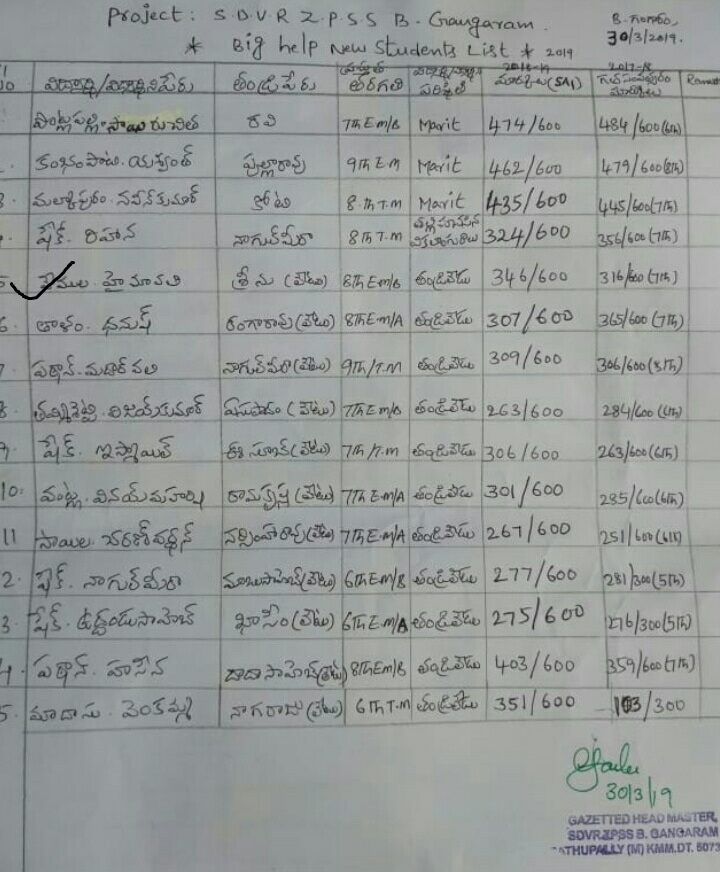 Project: S.D.V.R Z.P.S.S B. Gangaram.
B. గంగారం.
30/3/2019.
* Big help New Students List * 2019
విద్యార్థి/విద్యార్థిని పేరు తండ్రి పేరు ప్రస్తుత తరగతి పరిస్థితి 2018-19 మార్కులు (SA1) 2017-18 గత సంవత్సరం మార్కులు
పొంట్లపల్లి. సాయి రుచిత రవి 7Th E.m/B Marit 474/600 484/600(6th)
కంభంపాటి. యశ్వంత్ పుల్లారావు 9Th E.m Marit 462/600 479/600(8th)
మల్కాపురం. నవీన్ కుమార్ కోటి 8.th T.m Marit 435/600 445/600(7th)
షేక్. రిహాన నాగుల్ మీరా 8th T.m 324/600 356/600(7th)
వేముల. హైమావతి శ్రీను (లేటు) 8th E.m/B తండ్రిలేడు 346/600 316/600(7th)
6 తాళం. ధనుష్ రంగారావు (లేటు) 8th E.m/A తండ్రిలేడు 307/600 365/600(7th)
7 పఠాన్. మదార్ వలి నాగుల్ మీరా (లేటు) 9Th/T.m తండ్రిలేడు 309/600 306/600(8th)
8 తమ్మిశెట్టి. విజయ్ కుమార్ ఏసుపాదం (లేటు) 7Th E.m/B తండ్రిలేడు 263/600 284/600(6th)
9. షేక్. ఇస్మాయిల్ (లేటు) 7th/T.m తండ్రిలేడు 306/600 263/600(6th)
10. వంట్ల. వినయ్ మహర్షి రామకృష్ణ (లేటు) 7Th E.m/A తండ్రిలేడు 301/600 285/600(6th)
11 సాయిల. చరణ్ వర్ధన్ నర్సింహారావు (లేటు) 7Th E.m/A తండ్రిలేడు 267/600 251/600(6th)
2. షేక్. నాగుల్ మీరా మాబుసాహెబ్ (లేటు) 6Th E.m/B తండ్రిలేడు 277/600 281/300(5th)
3. షేక్. ఉద్దండుసాహెబ్ ఖాసీం (లేటు) 6Th E.m/A తండ్రిలేడు 275/600 276/300(5th)
4. పఠాన్. హసీన దాదాసాహెబ్ (లేటు) 8th E.m/B తండ్రిలేడు 403/600 359/600(7th)
5. మాదాసు. వెంకమ్మ నాగరాజు (లేటు) 6th T.m తండ్రిలేడు 351/600 103/300
30/3/19
GAZETTED HEAD MASTER,
SDVRZPSS B. GANGARAM
SATHUPALLY (M) KMM.DT. 5073